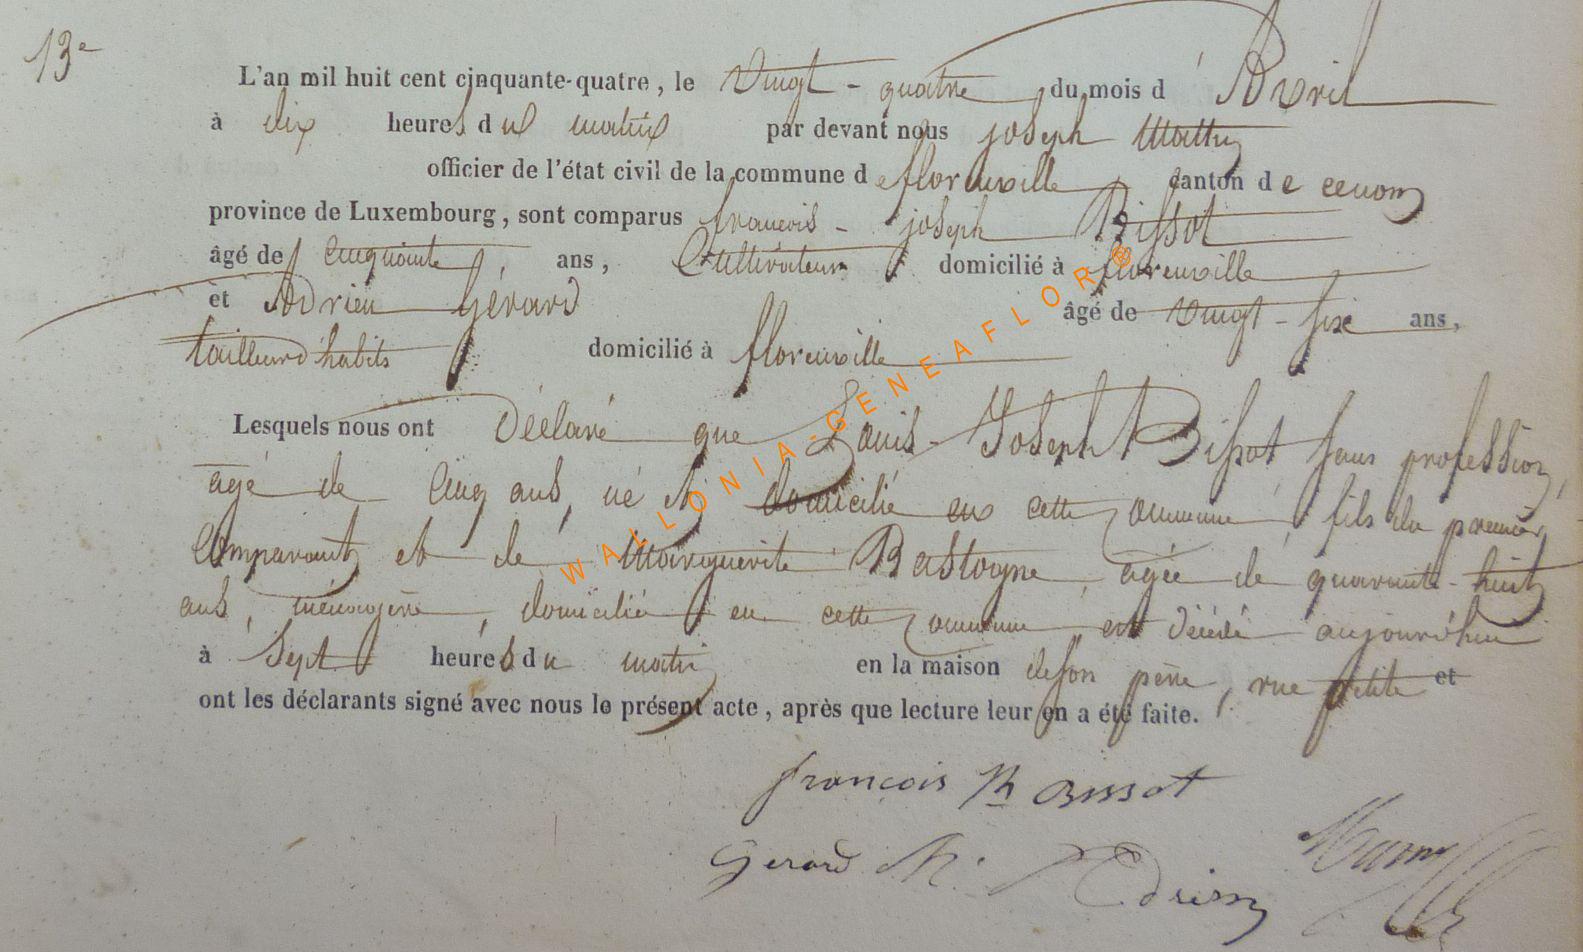 13e
L'an mil huit cent cinquante-quatre, le vingt-quatre du mois d'Avril
à dix heures du matin par devant nous joseph Mathy
officier de l'état civil de la commune de florenville, canton de
province de Luxembourg, sont comparus francois-joseph Bissot
âgé de cinquante ans, Cultivateur domicilié à florenville
et Adrien Gérard âgé de vingt-six ans,
tailleur d'habits domicilié à florenville
Lesquels nous ont déclaré que Louis-Joseph Bissot sans profession,
agé de cinq ans, né et domicilié en cette commune, fils du premier
Comparant et de Marguerite Bastogne, agée de quarante-huit
ans, ménagère, domiciliée en cette commune est décédé aujourd'hui
à Sept heures du matin en la maison de son père, rue petite et
ont les déclarants signé avec nous le présent acte, après que lecture leur en a été faite.
françois Bissot
Gerard
WALLONIA-GENEAFLOR®